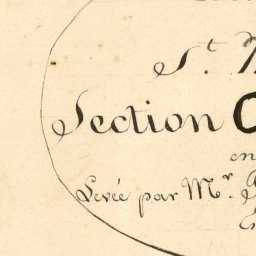 St.
Section C
en
Levée par Mr.